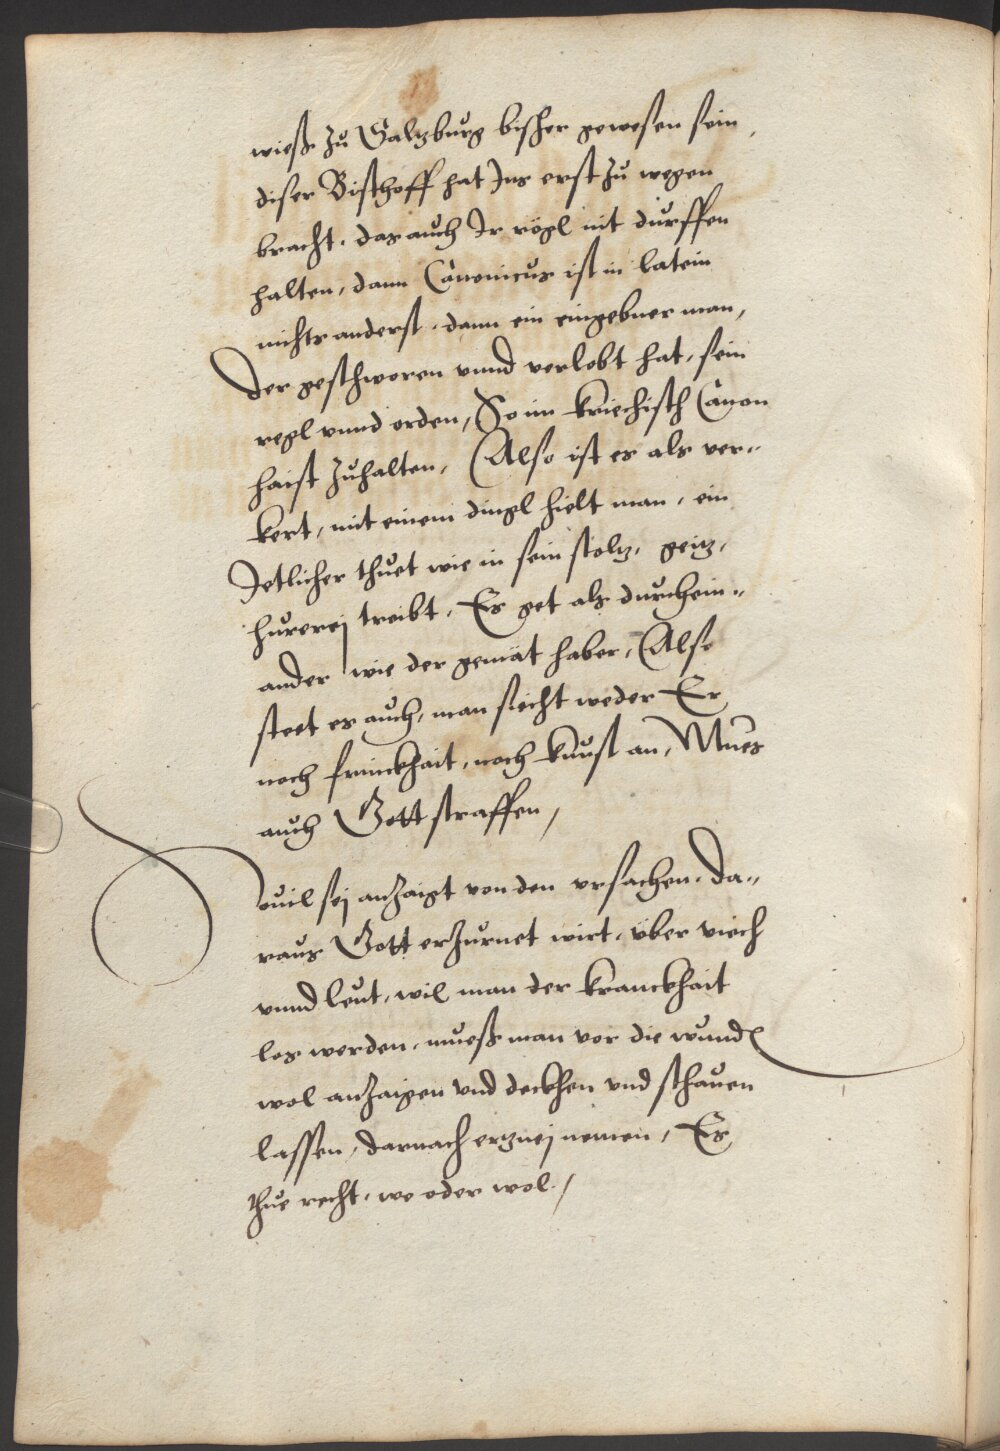 wieß zu Saltzburg bisher gewesen sein,
diser Bisthoff hat Ins erst zu wegen
bracht. das auch Ir rögl nit durffen
halten, dann Canonicus ist in latein
nichts anderst. dann ein eingebner man,
der geschworen vnnd verlobt hat, sein
regl vnnd orden, So im kriechisch Canon
haist zuhalten, Also ist es als ver„
kert, mit einem dingl hielt man, ein
Jetlicher thuet wie in sein stoltz, geitz,
hurerej treibt, Es get als durchein„
ander wie der gemät haber, Also
steet es auch, man siecht weder Er
noch frumckhait, noch kunst an, Mues
auch Gott straffen,
Souil sej anzaigt von den vrsachen. da„
raus Gott erzurnet wirt, über viech
vnnd leut, wil man der kranckhait
los werden, mueß man vor die wunden
wol anzaigen vnd deckhen vnd schauen
lassen, darnach ertznej nemen, Es
thue recht. we oder wol,